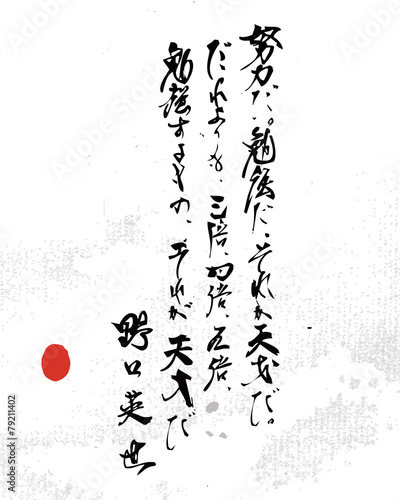 努力だ。勉強だ、それが天才だ。
だれよりも、三倍、四倍、五倍、
勉強するもの、それが天才だ
野口英世
Adobe Stock | #79211402